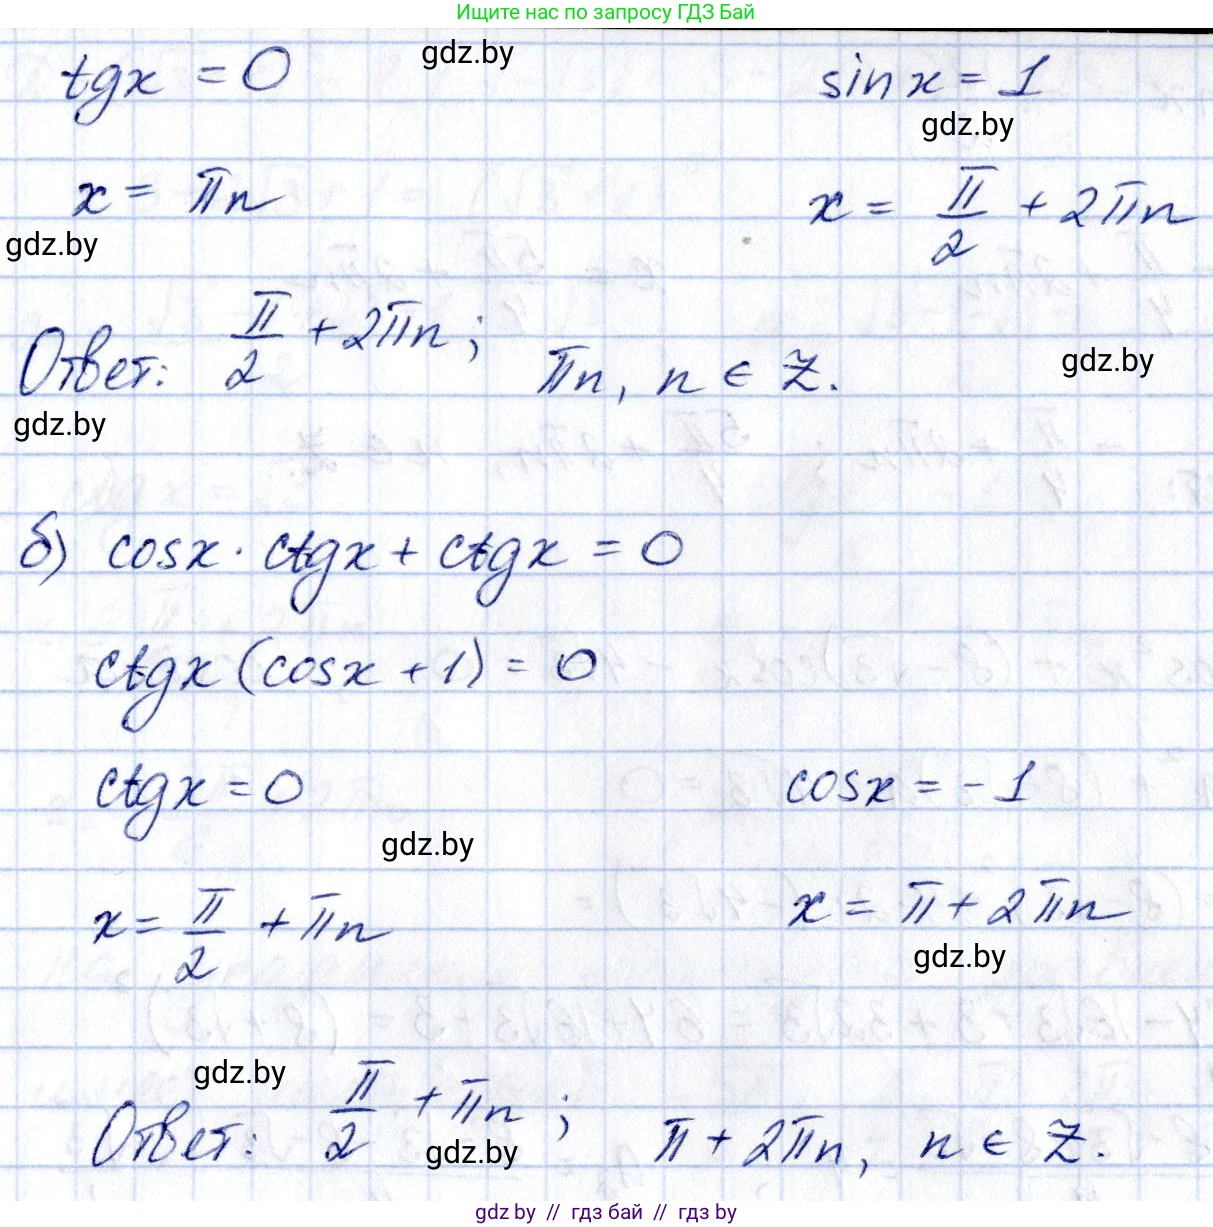 Ищите нас по запросу ГДЗ Бай
tgx = 0 sinx = 1
gdz.by
gdz.by
x = πn x = π/2 + 2πn
gdz.by
Ответ: π/2 + 2πn; πn, n ∈ Z.
gdz.by
gdz.by
б) cosx · ctgx + ctgx = 0
ctgx (cosx + 1) = 0
ctgx = 0 cosx = -1
gdz.by
x = π/2 + πn x = π + 2πn
gdz.by
gdz.by
Ответ: π/2 + πn; π + 2πn, n ∈ Z.
gdz.by
gdz.by // гдз бай // гдз by